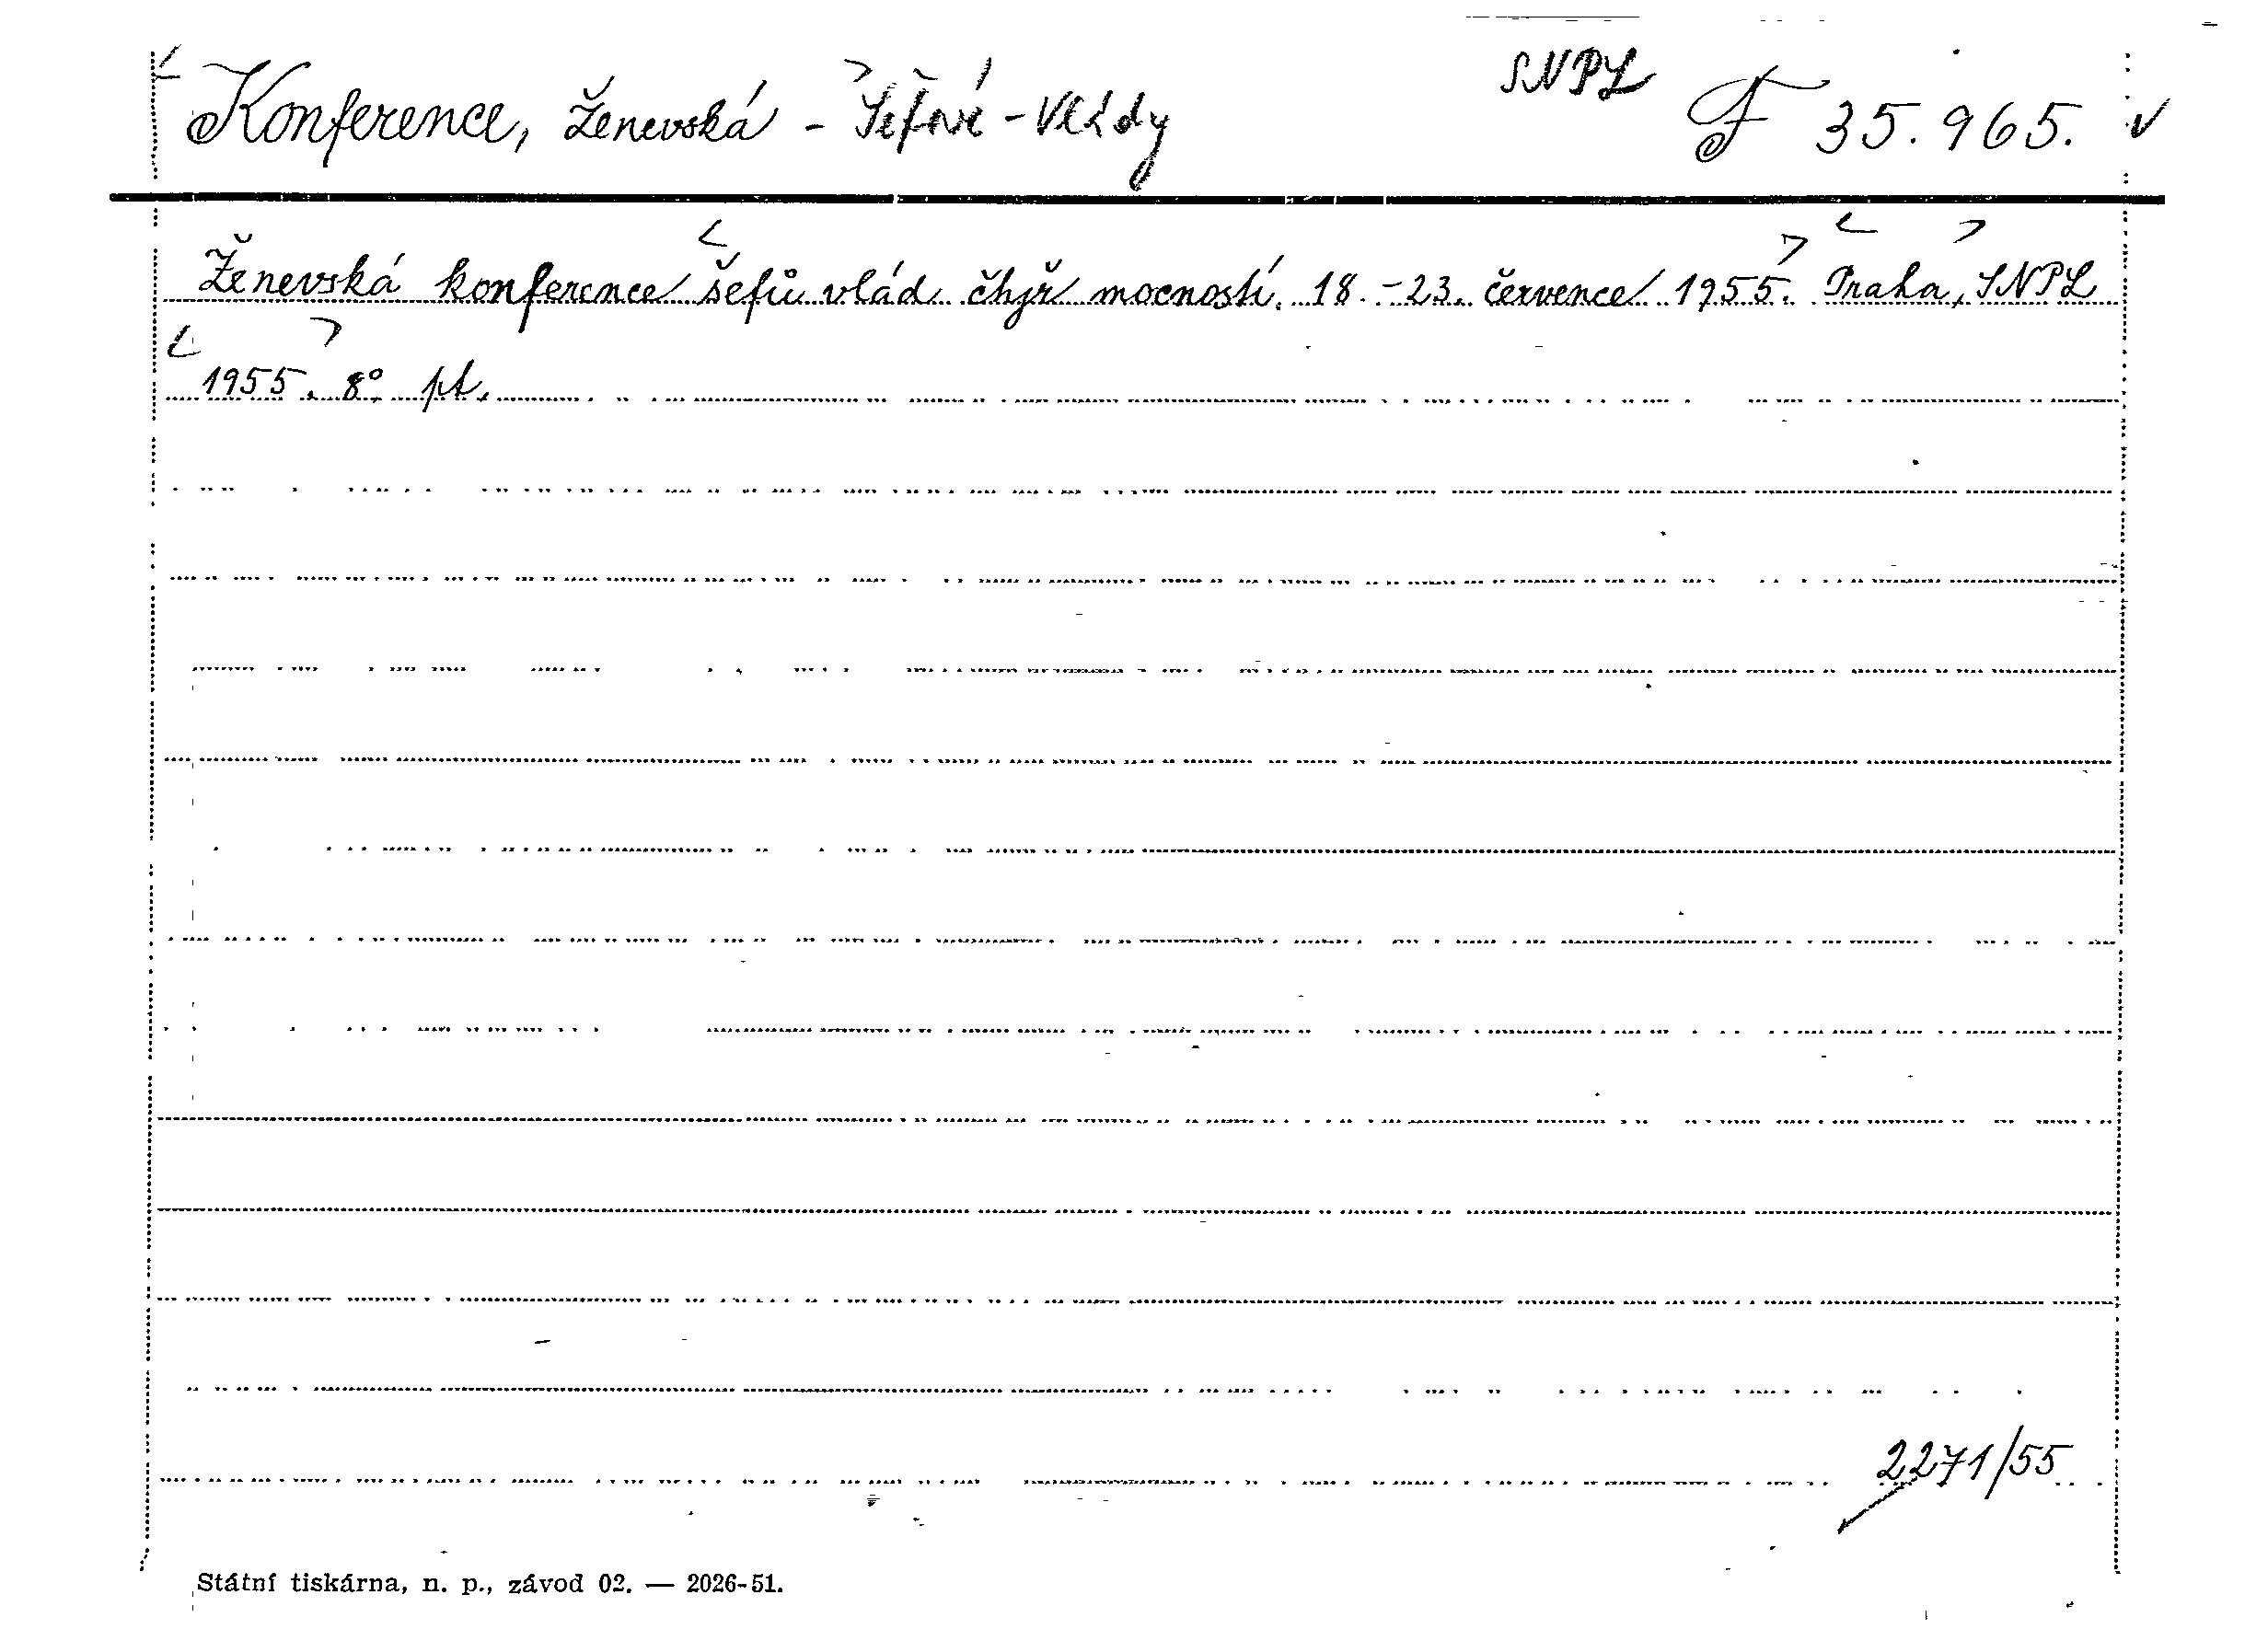 Konference, ženevská - Šéfové - Vlády SNPL F 35.965.
Ženevská konference šefů vlád čtyř mocností. 18.-23. července 1955. Praha, SNPL
1955. 8° pt.
2271/55
Státní tiskárna, n. p., závod 02. — 2026-51.